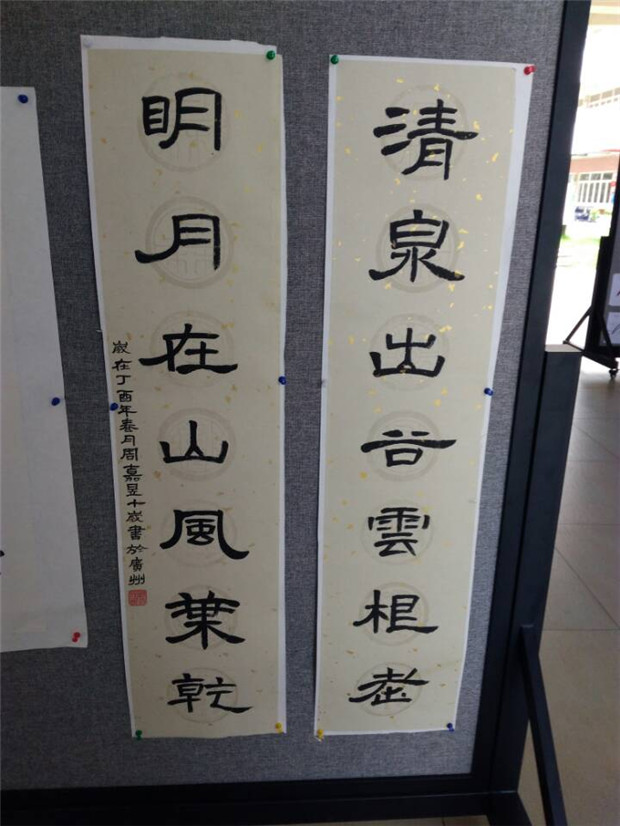 清泉出谷雲根老
明月在山風葉乾
歲在丁酉年春月周嘉昱十歲書於廣州